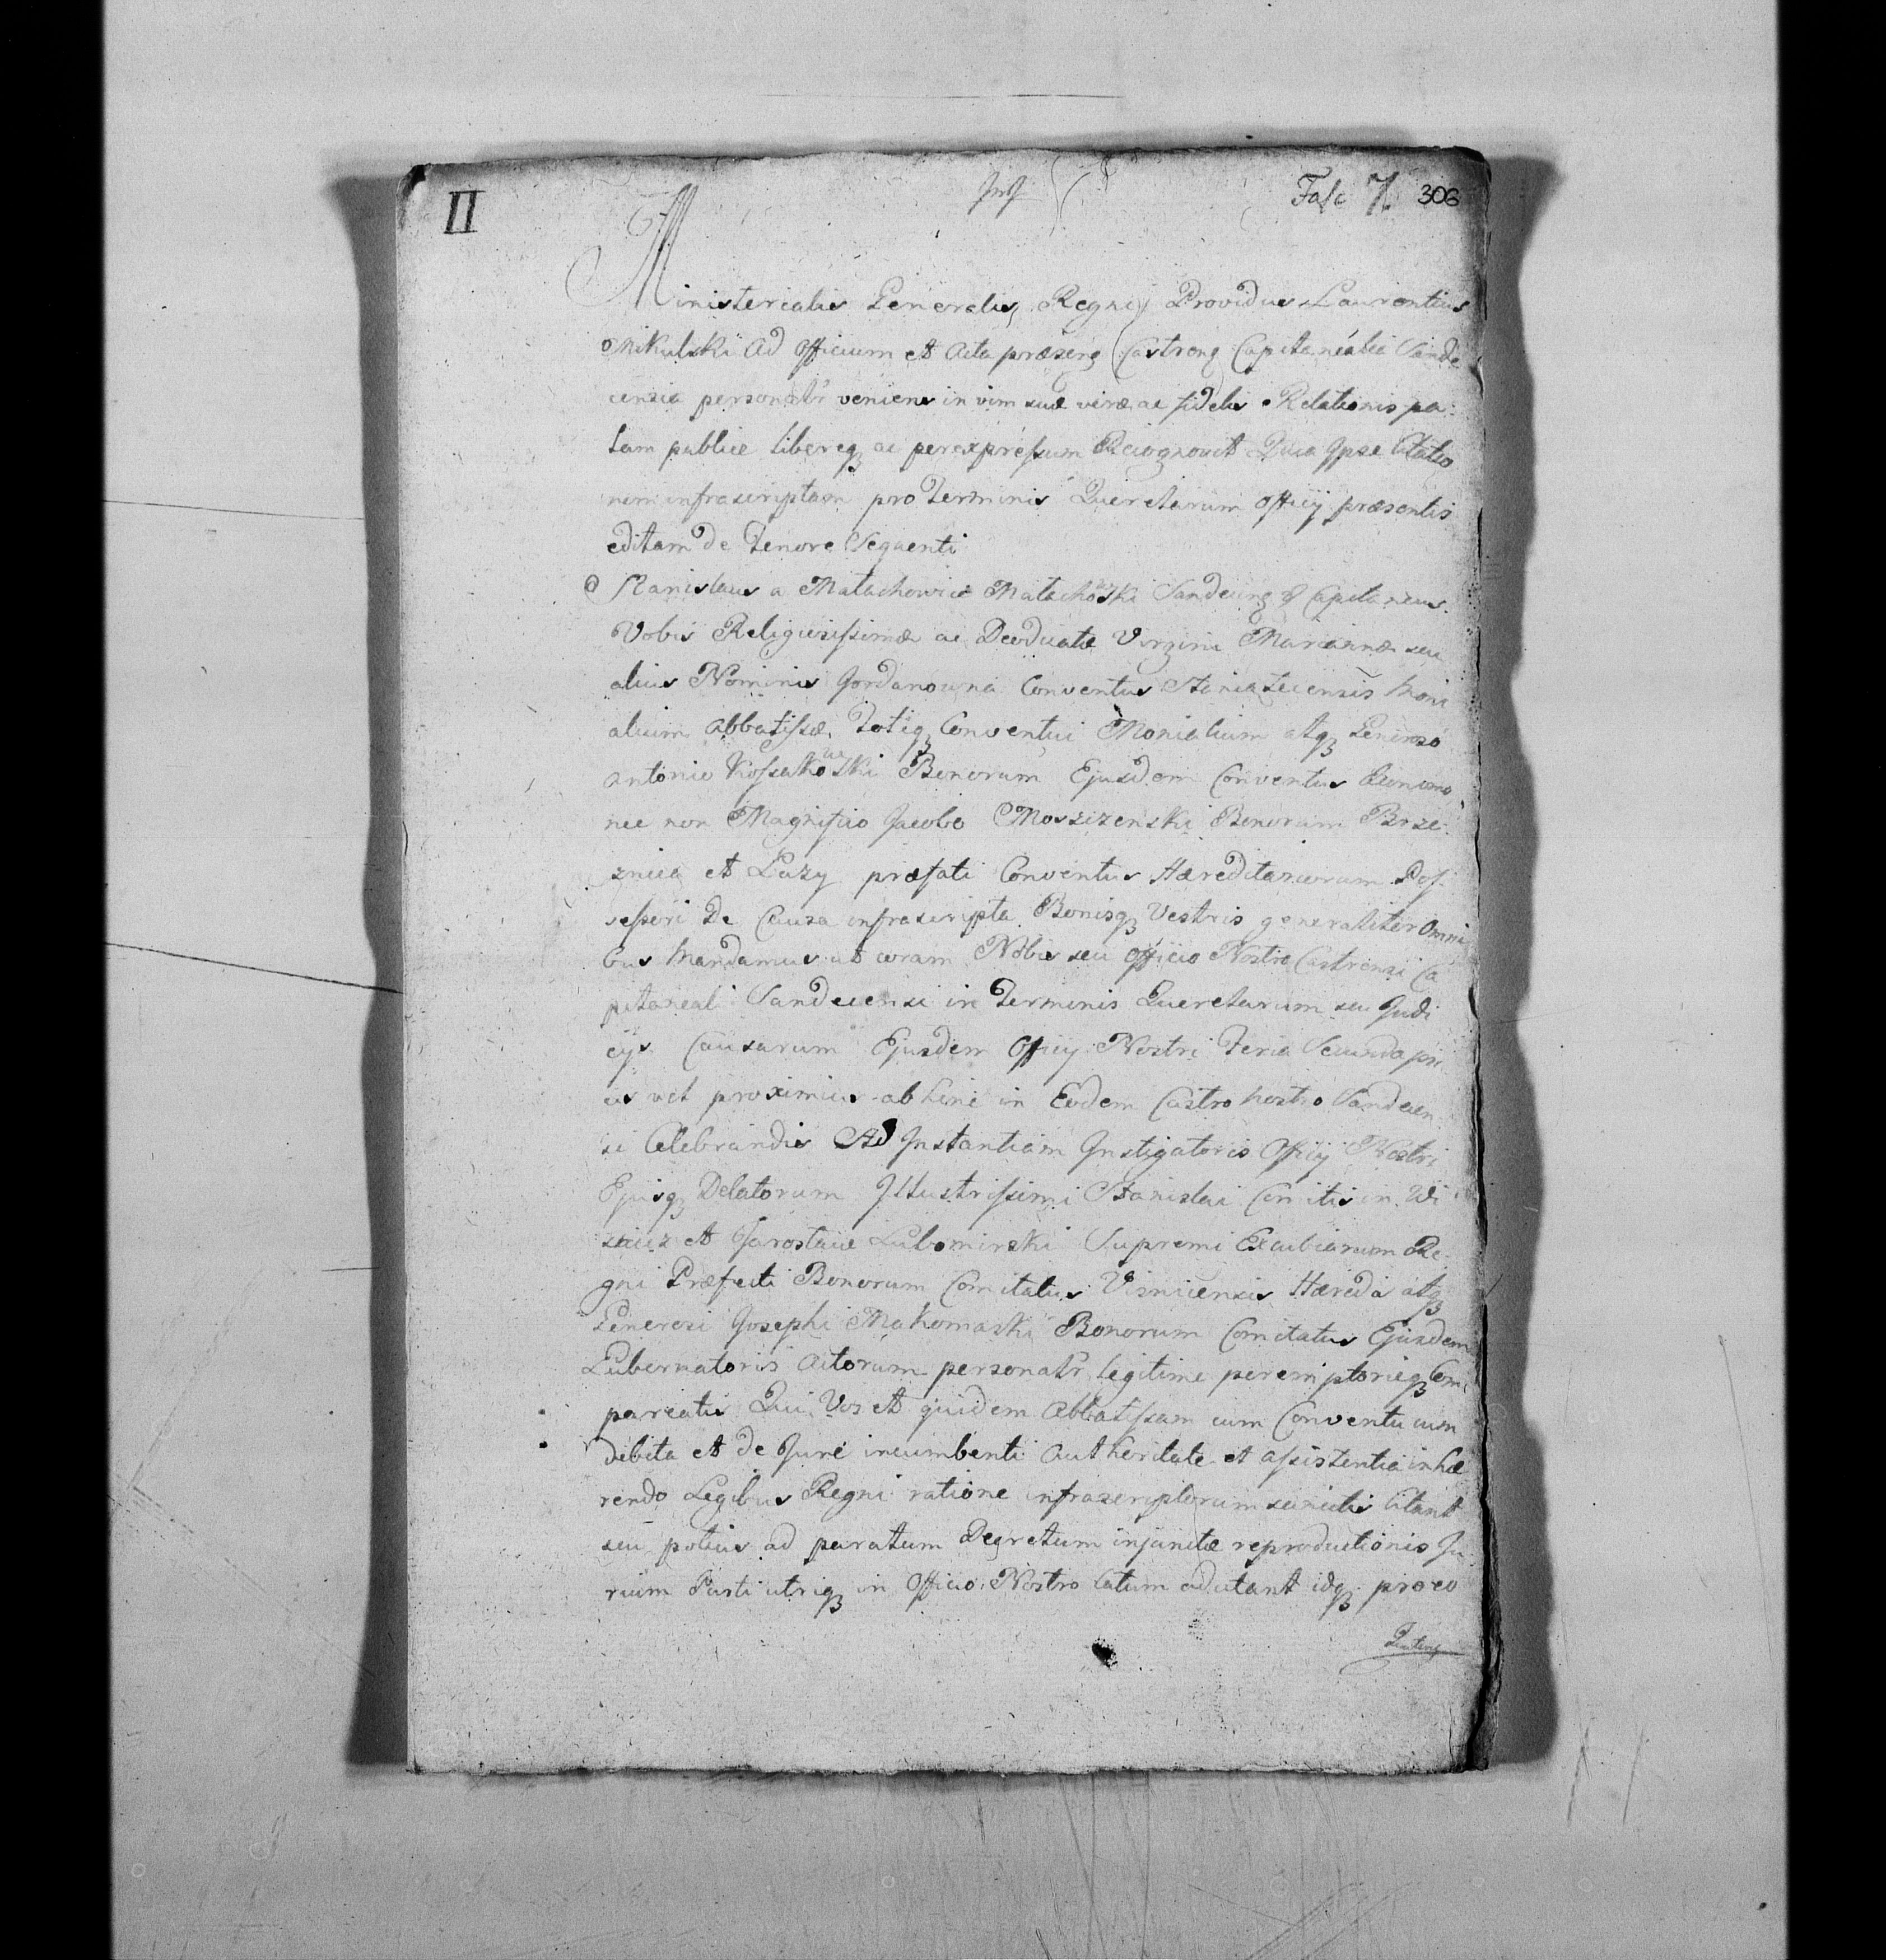 II
Fasc 7. 306
Ministerialis Generalis Regnij Providus Laurentius
Mikulski Ad Officium et Acta præsenq Castrenq Capitanealia Sande
censia personalr veniens in vim suæ veræ ac fidelis Relationis pa
lam publice libereq ac per expressum Recognovit Quia Ipse Citatio
nem infrascriptam pro Terminis Querelarum Officij præsentis
editam de Tenore Sequenti
Stanislaus a Małachowice Małachowski Sandecenq Capitaneus
Vobis Religiosissimæ ac Deodicatæ Virgini Mariannæ seu
alius Nominis Jordanowna Conventus Staniątecensis Moni
alium Abbatissæ, Totiq Conventui Monialium atq Generoso
Antonio Kossakowski Bonorum Ejusdem Conventus Economo
nec non Magnifico Jacobo Moszczenski Bonorum Brze
znica et Łazy præfati Conventus Hæreditariorum Pos
sessori De Causa infrascripta Bonisq Vestris generaliter Omni
bus Mandamus ut coram Nobis seu Officio Nostro Castrensi Ca
pitaneali Sandecensi in Terminis Querelarum seu Judi
cijs Causarum Ejusdem Officij Nostri Feria Secunda pri
us vel proximius abhinc in Eodem Castro Nostro Sandecen
si Celebrandis Ad Instantiam Instigatoris Officij Nostri
Ejusq Delatorum Illustrissimi Stanislai Comitis in Wi
snicz et Jarosław Lubomirski Supremi Excubiarum Re
gni Præfecti Bonorum Comitatus Visnicensis Hæredis atq
Generosi Josephi Makomaski Bonorum Comitatus Ejusdem
Gubernatoris Actorum personalr legitime peremptorieq Com
pareatis Qui Vos et quidem Abbatissam cum Conventu cum
debita et de Jure incumbenti Authoritate et assistentia inhæ
rendo Legibus Regni ratione infrascriptorum Citant
seu potius ad paratum Decretum injunctæ reproductionis Ju
rium Parti utriq in Officio Nostro latum adcitant idq pro eo